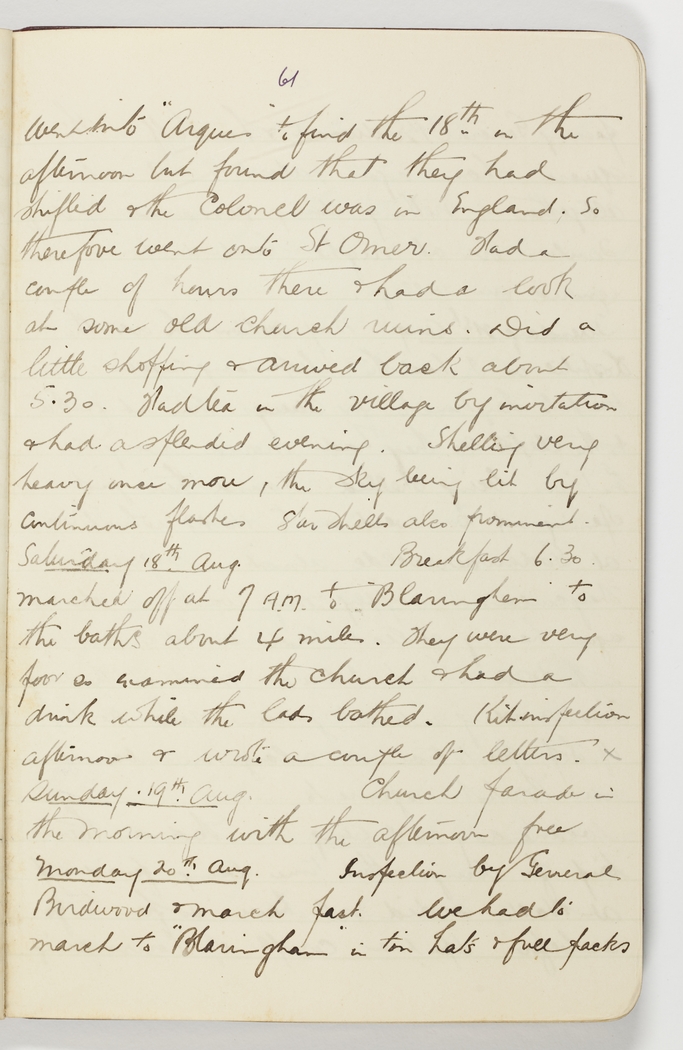 61
Went into "Arques" to find the 18th in the
afternoon but found that they had
shifted & the Colonel was in England. So
therefore went onto St Omer. Had a
couple of hours there & had a look
at some old church ruins. Did a
little shopping & arrived back about
5.30. Had tea in the village by invitation
& had a splendid evening. Shelling very
heavy once more, the sky being lit by
continuous flashes Star shells also prominent.
Saturday 18th Aug. Breakfast 6.30.
marched off at 7 A.M. to "Blaringhem" to
the baths about 4 miles. They were very
poor so examined the church & had a
drink while the lads bathed. Kit inspection
afternoon & wrote a couple of letters. x
Sunday. 19th Aug. Church parade in
the morning with the afternoon free
Monday 20th Aug. Inspection by General
Birdwood & march past. We had to
march to "Blaringham" in tin hats & full packs